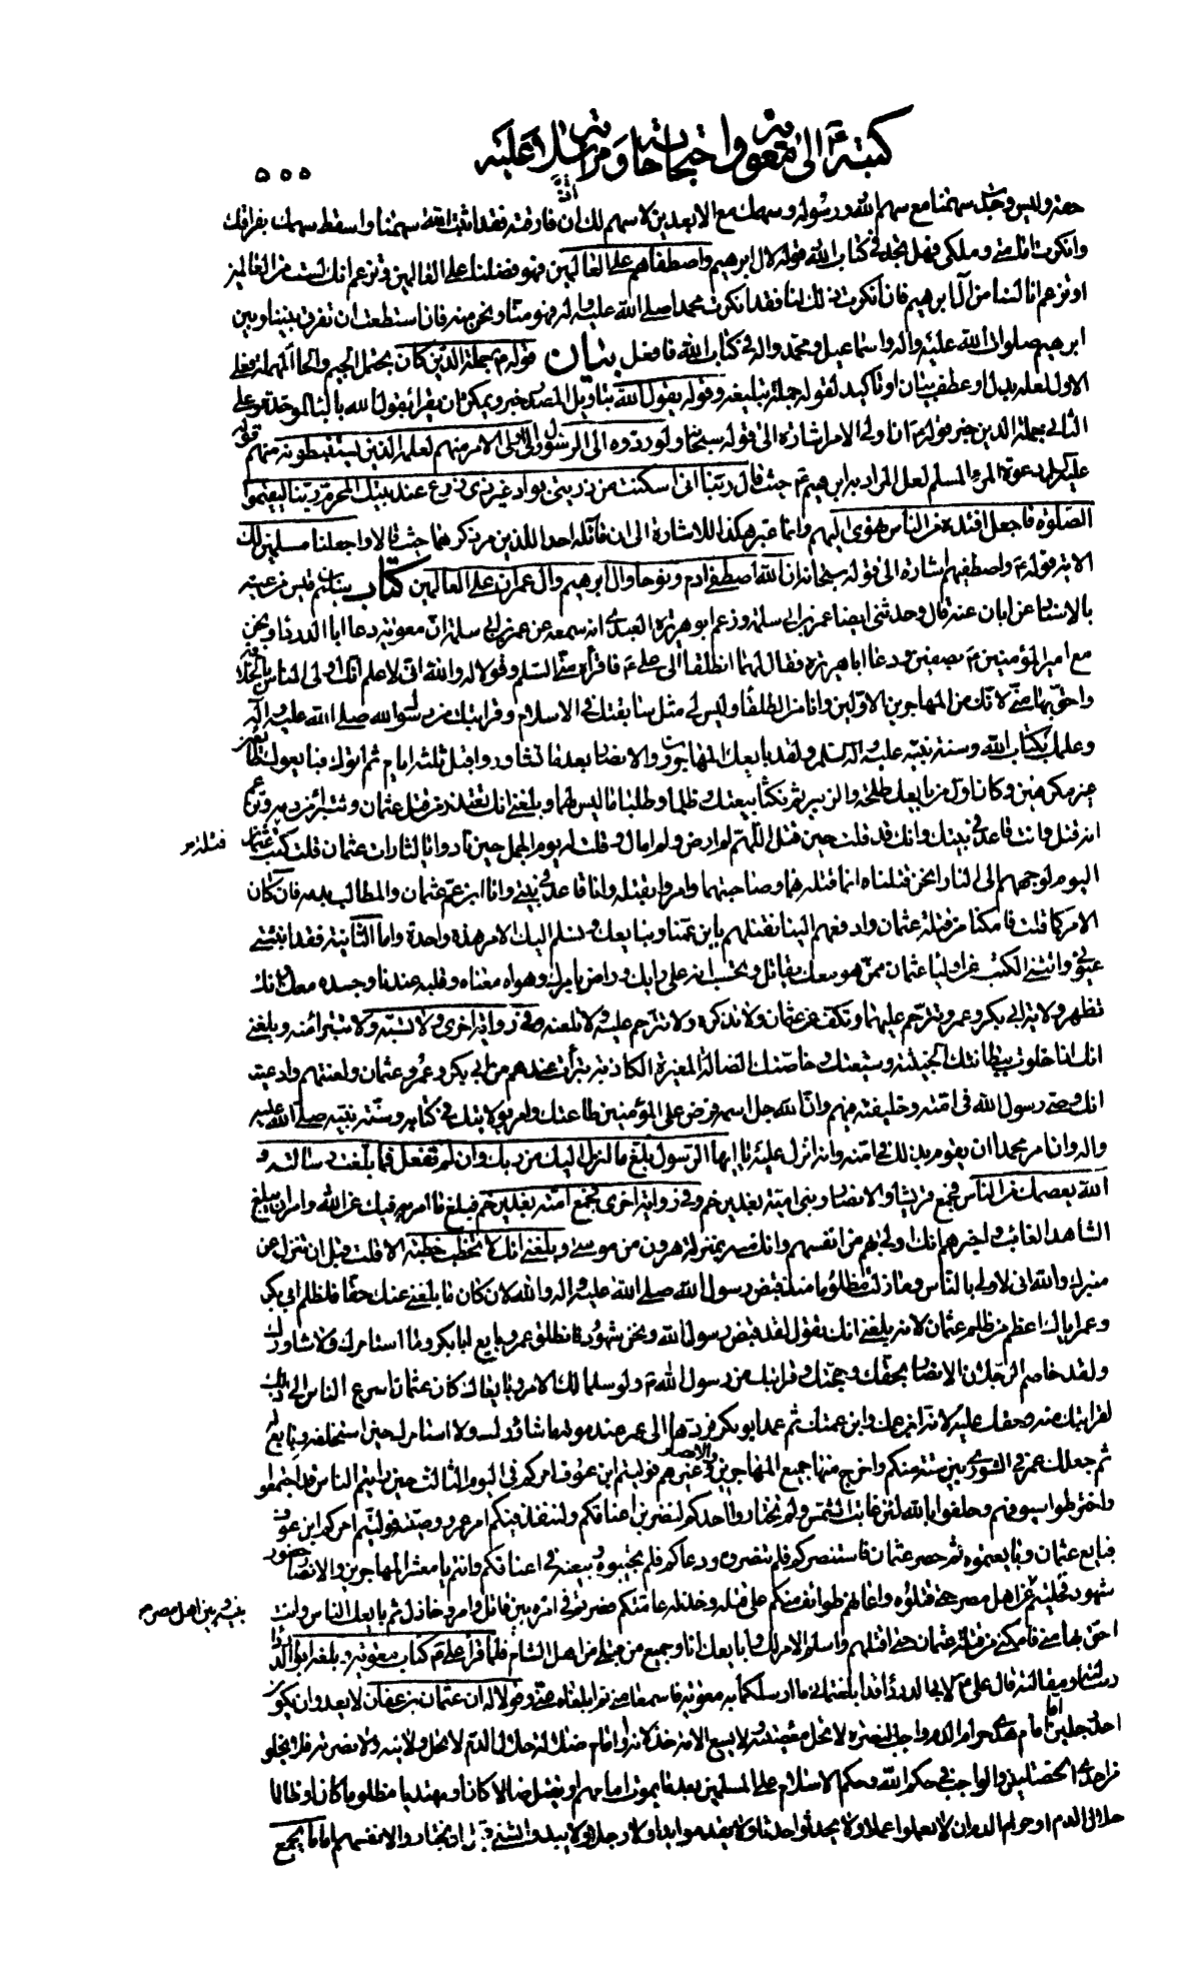 كتبه ع الى معوية واحتجاجاته ومراسلاته عليه
٥٥٥
حقه وليس وجدك سهمنا مع سهم الله ورسوله وسهمك مع الابعدين لا سهم لك ان فارقته فقد اثبت الله سهمنا واسقط سهمك بفراقك
وانكرت امامتي وملكي فهل تجد في كتاب الله قوله لال ابرهيم واصطفاهم على العالمين فهو فضلنا على العالمين وتزعم انك لست من العالمين
او تزعم انا لسنا من آل ابرهيم فان انكرت ذلك لنا فقد انكرت محمدا صلى الله عليه واله فهو منا ونحن منه فان استطعت ان تفرق بيننا وبين
ابرهيم صلوات الله عليه واله واسماعيل ومحمد واله في كتاب الله فافعل بيان قوله ع بجملة الذين كان يحتمل الجيم والحاء المهملة فعلى
الاول لعله بدل او عطف بيان او تاكيد لقوله جملة تبليغه وقوله يقول الله بتاويل المصدر خبره ويمكن ان يقرا بقول الله بالباء الموحدة وعلى
الثاني بجملة الذين خبر قوله ع انا ولي الامر اشارة الى قوله سبحانه ولو ردوه الى الرسول والى اولي الامر منهم لعلمه الذين يستنبطونه منهم قوله
عليه السلم دعوة المرء المسلم لعل المراد به ابرهيم ع حيث قال ربنا اني اسكنت من ذريتي بواد غير ذي زرع عند بيتك المحرم ربنا ليقيموا
الصلوة فاجعل افئدة من الناس تهوى اليهم وانما عبر هكذا للاشارة الى ان قائله احد اللذين مر ذكرهما حيث قالا واجعلنا مسلمين لك
الاية قوله ع واصطفيهم اشارة الى قوله سبحانه ان الله اصطفى ادم ونوحا وال ابرهيم وال عمران على العالمين كتاب سليم بن قيس من عينه
بالاسناد عن ابان عنه قال وحدثني ايضا عمر بن ابي سلمة وزعم ابو هريرة العبدي انه سمعه عن عمر بن ابي سلمة ان معوية دعا ابا الدرداء ونحن
مع امير المؤمنين ع بصفين ودعا ابا هريرة فقال لهما انطلقا الى علي ع فاقراه مني السلم وقولا له والله اني لاعلم انك اولى الناس بالخلافة
واحق بها مني لانك من المهاجرين الاولين وانا من الطلقاء وليس لي مثل سابقتك في الاسلام وقرابتك من رسول الله صلى الله عليه واله
وعلمك بكتاب الله وسنة نبيه عليه واله السلم ولقد بايعك المهاجرون والانصار بعد ما تشاوروا قبل ثلثة ايام ثم اتوك فبايعوك طائعين
غير مكرهين وكان اول من بايعك طلحة والزبير ثم نكثا بيعتك وظلماك وطلبا ما ليس لهما وبلغني انك تعتذر من قتل عثمان وتتبرا من دمه وتزعم
انه قتل وانت قاعد في بيتك وانك قد قلت حين قتل اللهم لم ارض ولم امال وقلت له يوم الجمل حين نادوا يا لثارات عثمان قلت كب قتلة عثمان
اليوم لوجههم الى النار انحن قتلناه انما قتله هما وصاحبتهما وامروا بقتله وانا قاعد في بيتي وانا ابن عم عثمان والمطالب بدمه فان كان
الامر كما قلت فامكنا من قتلة عثمان وادفعهم الينا نقتلهم بابن عمنا ونبايعك ونسلم اليك الامر هذه واحدة واما الثانية فقد انبئتني
عيوني واتتني الكتب عن اولياء عثمان ممن هو معك يقاتل وتحسب انه على رايك وراض بامرك وهواه معنا وقلبه عندنا وجسده معك انك
تظهر ولاية ابي بكر وعمر وتترحم عليهما وتكف عن عثمان ولا تذكره ولا تترحم عليه ولا تلعنه وفي رواية اخرى ولا تسبه ولا تتبرا منه وبلغني
انك اذا خلوت ببطانتك الخبيثة وشيعتك وخاصتك الضالة المغيرة الكاذبة تبرات عندهم من ابي بكر وعمر وعثمان ولعنتهم وادعيت
انك وصي رسول الله في امته وخليفته فيهم وان الله جل اسمه فرض على المؤمنين طاعتك وامر بولايتك في كتابه وسنة نبيه صلى الله عليه
واله وان الله امر محمدا ان يقوم بذلك في امته وانه انزل عليه يا ايها الرسول بلغ ما انزل اليك من ربك وان لم تفعل فما بلغت رسالته و
الله يعصمك من الناس فجمع قريشا والانصار وبني امية بغدير خم وفي رواية اخرى فجمع امته بغدير خم فبلغ ما امر به فيك عن الله وامر ان يبلغ
الشاهد الغائب واخبرهم انك اولى بهم من انفسهم وانك منه بمنزلة هرون من موسى وبلغني انك لا تخطب خطبة الا قلت قبل ان تنزل عن
منبرك والله اني لاولى بالناس وما زلت مظلوما منذ قبض رسول الله صلى الله عليه واله والله لان كان ما بلغني عنك حقا فلظلم ابي بكر
وعمر اياك اعظم من ظلم عثمان لانه بلغني انك تقول لقد قبض رسول الله ونحن شهود فانطلق عمر وبايع ابا بكر وما استامرك ولا شاورك
ولقد خاصم الرجلان الانصار بحقك وحجتك وقرابتك من رسول الله ص ولو سلما لك الامر وبايعاك كان عثمان اسرع الناس الى ذلك
لقرابتك منه وحقك عليه لانه ابن عمك وابن عمتك ثم عمد ابو بكر فردها الى عمر عند موته ما شاورك ولا استامرك حين استخلفه وبايع له
ثم جعلك عمر في الشورى بين ستة منكم واخرج منها جميع المهاجرين والانصار وغيرهم فوليتم ابن عوف امركم في اليوم الثالث حين رايتم الناس قد اجتمعوا
واخترطوا سيوفهم وحلفوا بالله لئن غابت الشمس ولم تختاروا احدكم ليضربن اعناقكم ولينفذن فيكم امر عمر ووصيته فوليتم امركم ابن عوف
فبايع عثمان وبايعتموه ثم حصر عثمان فاستنصركم فلم تنصروه ودعاكم فلم تجيبوه وبيعته في اعناقكم وانتم يا معشر المهاجرين والانصار حضور
شهود فخليتم عن اهل مصر حتى قتلوه واعانهم طوائف منكم على قتله وخذله عامتكم فصرتم في امره بين قاتل وامر وخاذل ثم بايعك الناس وانت
احق بها مني فامكني من قتلة عثمان حتى اقتلهم واسلم الامر لك وابايعك انا وجميع من قبلي من اهل الشام فلما قرا علي ع كتاب معوية وبلغه ابو الدرداء
رسالته ومقالته قال علي ع لابي الدرداء قد ابلغتماني ما ارسلكما به معوية فاسمعا مني ثم ابلغاه عني وقولا له ان عثمان بن عفان لا يعدو ان يكون
احد رجلين اما امام هدى حرام الدم واجب النصرة لا تحل معصيته ولا يسع الامة خذلانه او امام ضلالة حلال الدم لا تحل ولايته ولا نصرته فلا يخلو
من احدى الخصلتين والواجب في حكم الله وحكم الاسلام على المسلمين بعد ما يموت امامهم او يقتل ضالا كان او مهتديا مظلوما كان او ظالما
حلال الدم او حرام الدم ان لا يعملوا عملا ولا يحدثوا حدثا ولا يقدموا يدا ولا رجلا ولا يبدؤا بشيء قبل ان يختاروا لانفسهم اماما يجمع
قتلة م
بينه وبين اهل مصر م